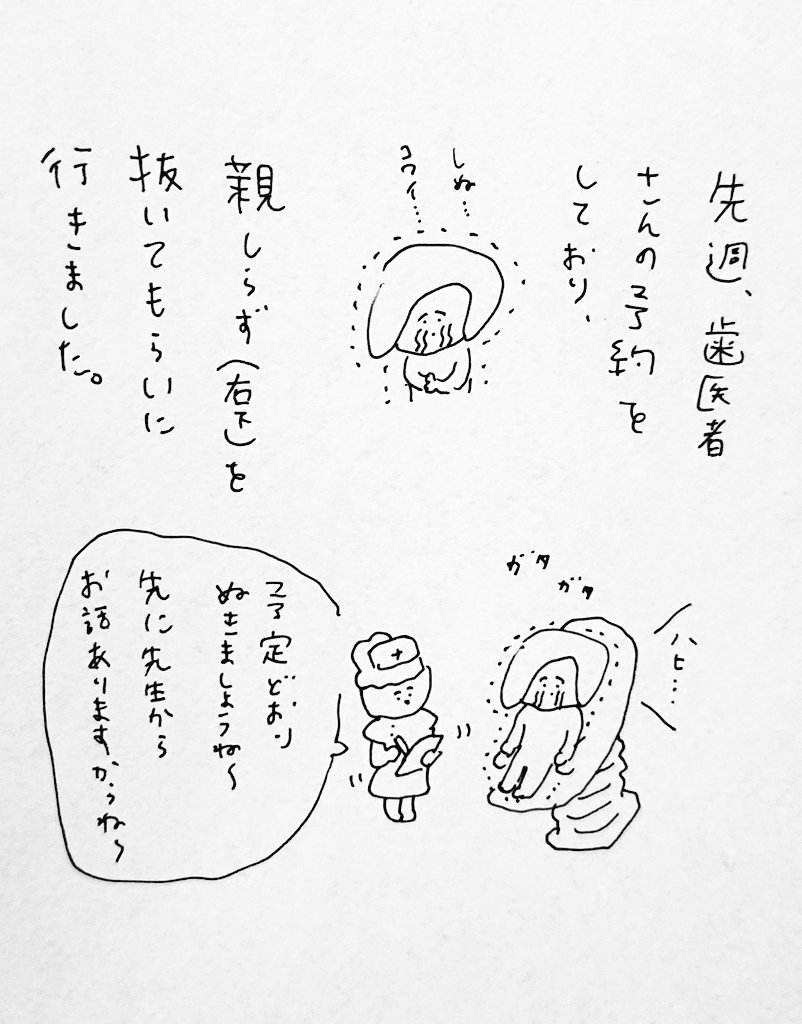 先週、歯医者
さんの予約を
しており、
しぬ…
コワイ……
親しらず(右下)を
抜いてもらいに
行きました。
ハヒ…
ガタ
ガタ
予定どおり
ぬきましょうね〜
先に先生から
お話ありますからね〜